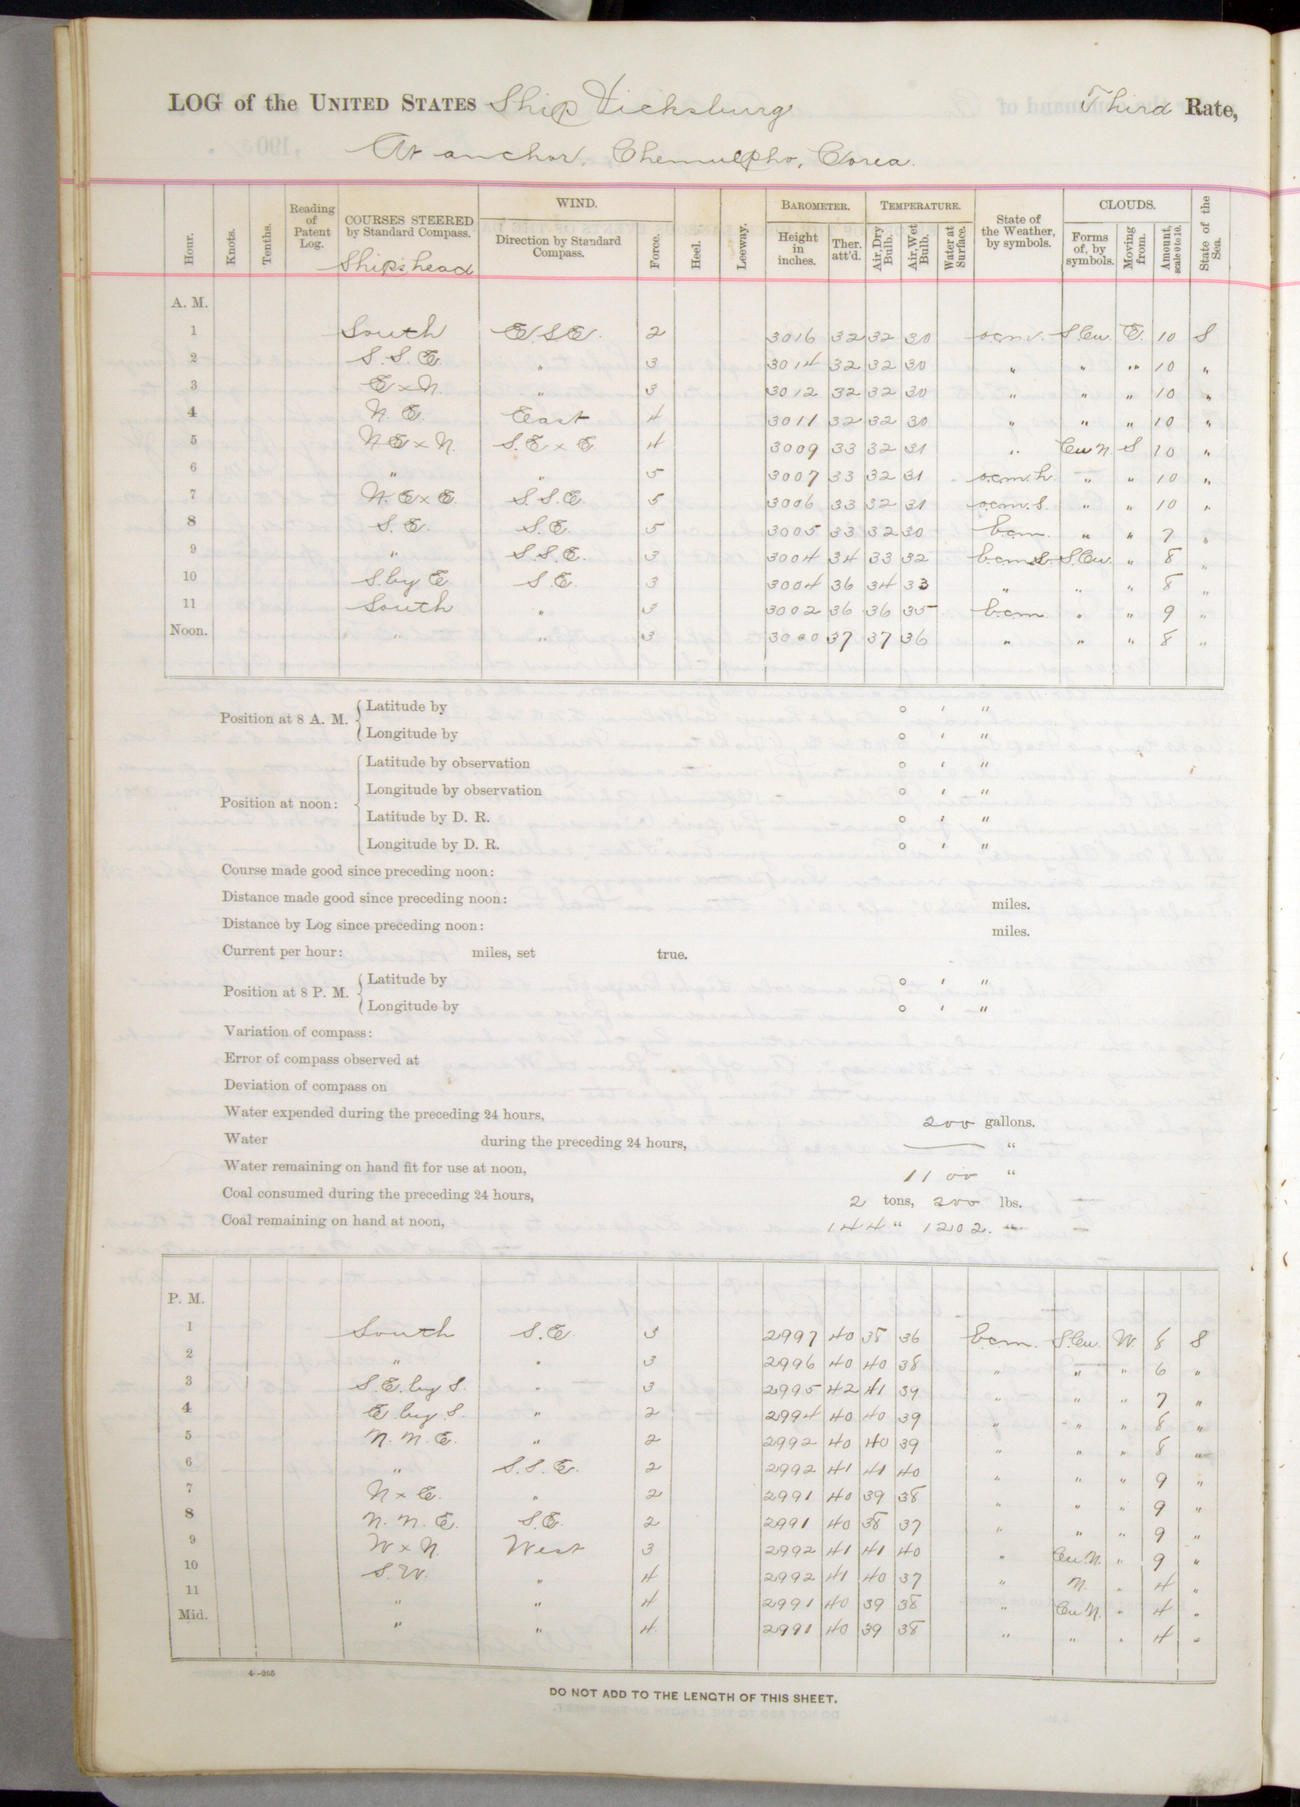 LOG of the UNITED STATES Ship Vicksburg Third Rate,
At anchor, Chemulpho, Corea.
Hour. Knots. Tenths. Reading of Patent Log. COURSES STEERED by Standard Compass. WIND. Direction by Standard Compass. Force. Heel. Leeway. BAROMETER. Height in inches. Ther. att'd. TEMPERATURE. Air, Dry Bulb. Air, Wet Bulb. Water at Surface. State of the Weather, by symbols. CLOUDS. Forms of, by symbols. Moving from. Amount, scale 0 to 10. State of the Sea.
Ship's head
A. M.
1 South E S E. 2 3016 32 32 30 o.c.m. S.Cu. E. 10 S
2 S. S. E. " 3 3014 32 32 30 " " " 10 "
3 E x N. " 3 3012 32 32 30 " " " 10 "
4 N. E. East 4 3011 32 32 30 " " " 10 "
5 N E x N. S. E x E. 4 3009 33 32 31 " Cu N. S 10 "
6 " " 5 3007 33 32 31 o.c.m.h. " " 10 "
7 N. E x E. S. S. E. 5 3006 33 32 31 o.c.m.s. " " 10 "
8 S. E. S. E. 5 3005 33 32 30 b.c.m. " " 7 "
9 " S. S. E. 3 3004 34 33 32 b.c.m.s. S.Cu. " 8 "
10 S. by E S. E. 3 3004 36 34 33 " " " 8 "
11 South " 3 3002 36 36 35 b.c.m. " " 9 "
Noon. " " 3 3000 37 37 36 " " " 8 "
Position at 8 A. M. Latitude by ° ' "
Longitude by ° ' "
Position at noon: Latitude by observation ° ' "
Longitude by observation ° ' "
Latitude by D. R. ° ' "
Longitude by D. R. ° ' "
Course made good since preceding noon:
Distance made good since preceding noon: miles.
Distance by Log since preceding noon: miles.
Current per hour: miles, set true.
Position at 8 P. M. Latitude by ° ' "
Longitude by ° ' "
Variation of compass:
Error of compass observed at
Deviation of compass on
Water expended during the preceding 24 hours, 200 gallons.
Water during the preceding 24 hours, — "
Water remaining on hand fit for use at noon, 1100 "
Coal consumed during the preceding 24 hours, 2 tons, 200 lbs.
Coal remaining on hand at noon, 144 " 1202. "
P. M.
1 South S. E. 3 2997 40 38 36 b.c.m. S.Cu. W. 8 S
2 " " 3 2996 40 40 38 " " " 6 "
3 S. E. by S. " 3 2995 42 41 39 " " " 7 "
4 E. by S. " 2 2994 40 40 39 " " " 8 "
5 N. N. E. " 2 2992 40 40 39 " " " 8 "
6 " S. S. E. 2 2992 41 41 40 " " " 9 "
7 N x E. " 2 2991 40 39 38 " " " 9 "
8 N. N. E. S. E. 2 2991 40 38 37 " " " 9 "
9 W x N. West 3 2992 41 41 40 " Cu. N. " 9 "
10 S. W. " 4 2992 41 40 37 " N. " 4 "
11 " " 4 2991 40 39 38 " Cu N. " 4 "
Mid. " " 4 2991 40 39 38 " " " 4 "
DO NOT ADD TO THE LENGTH OF THIS SHEET.